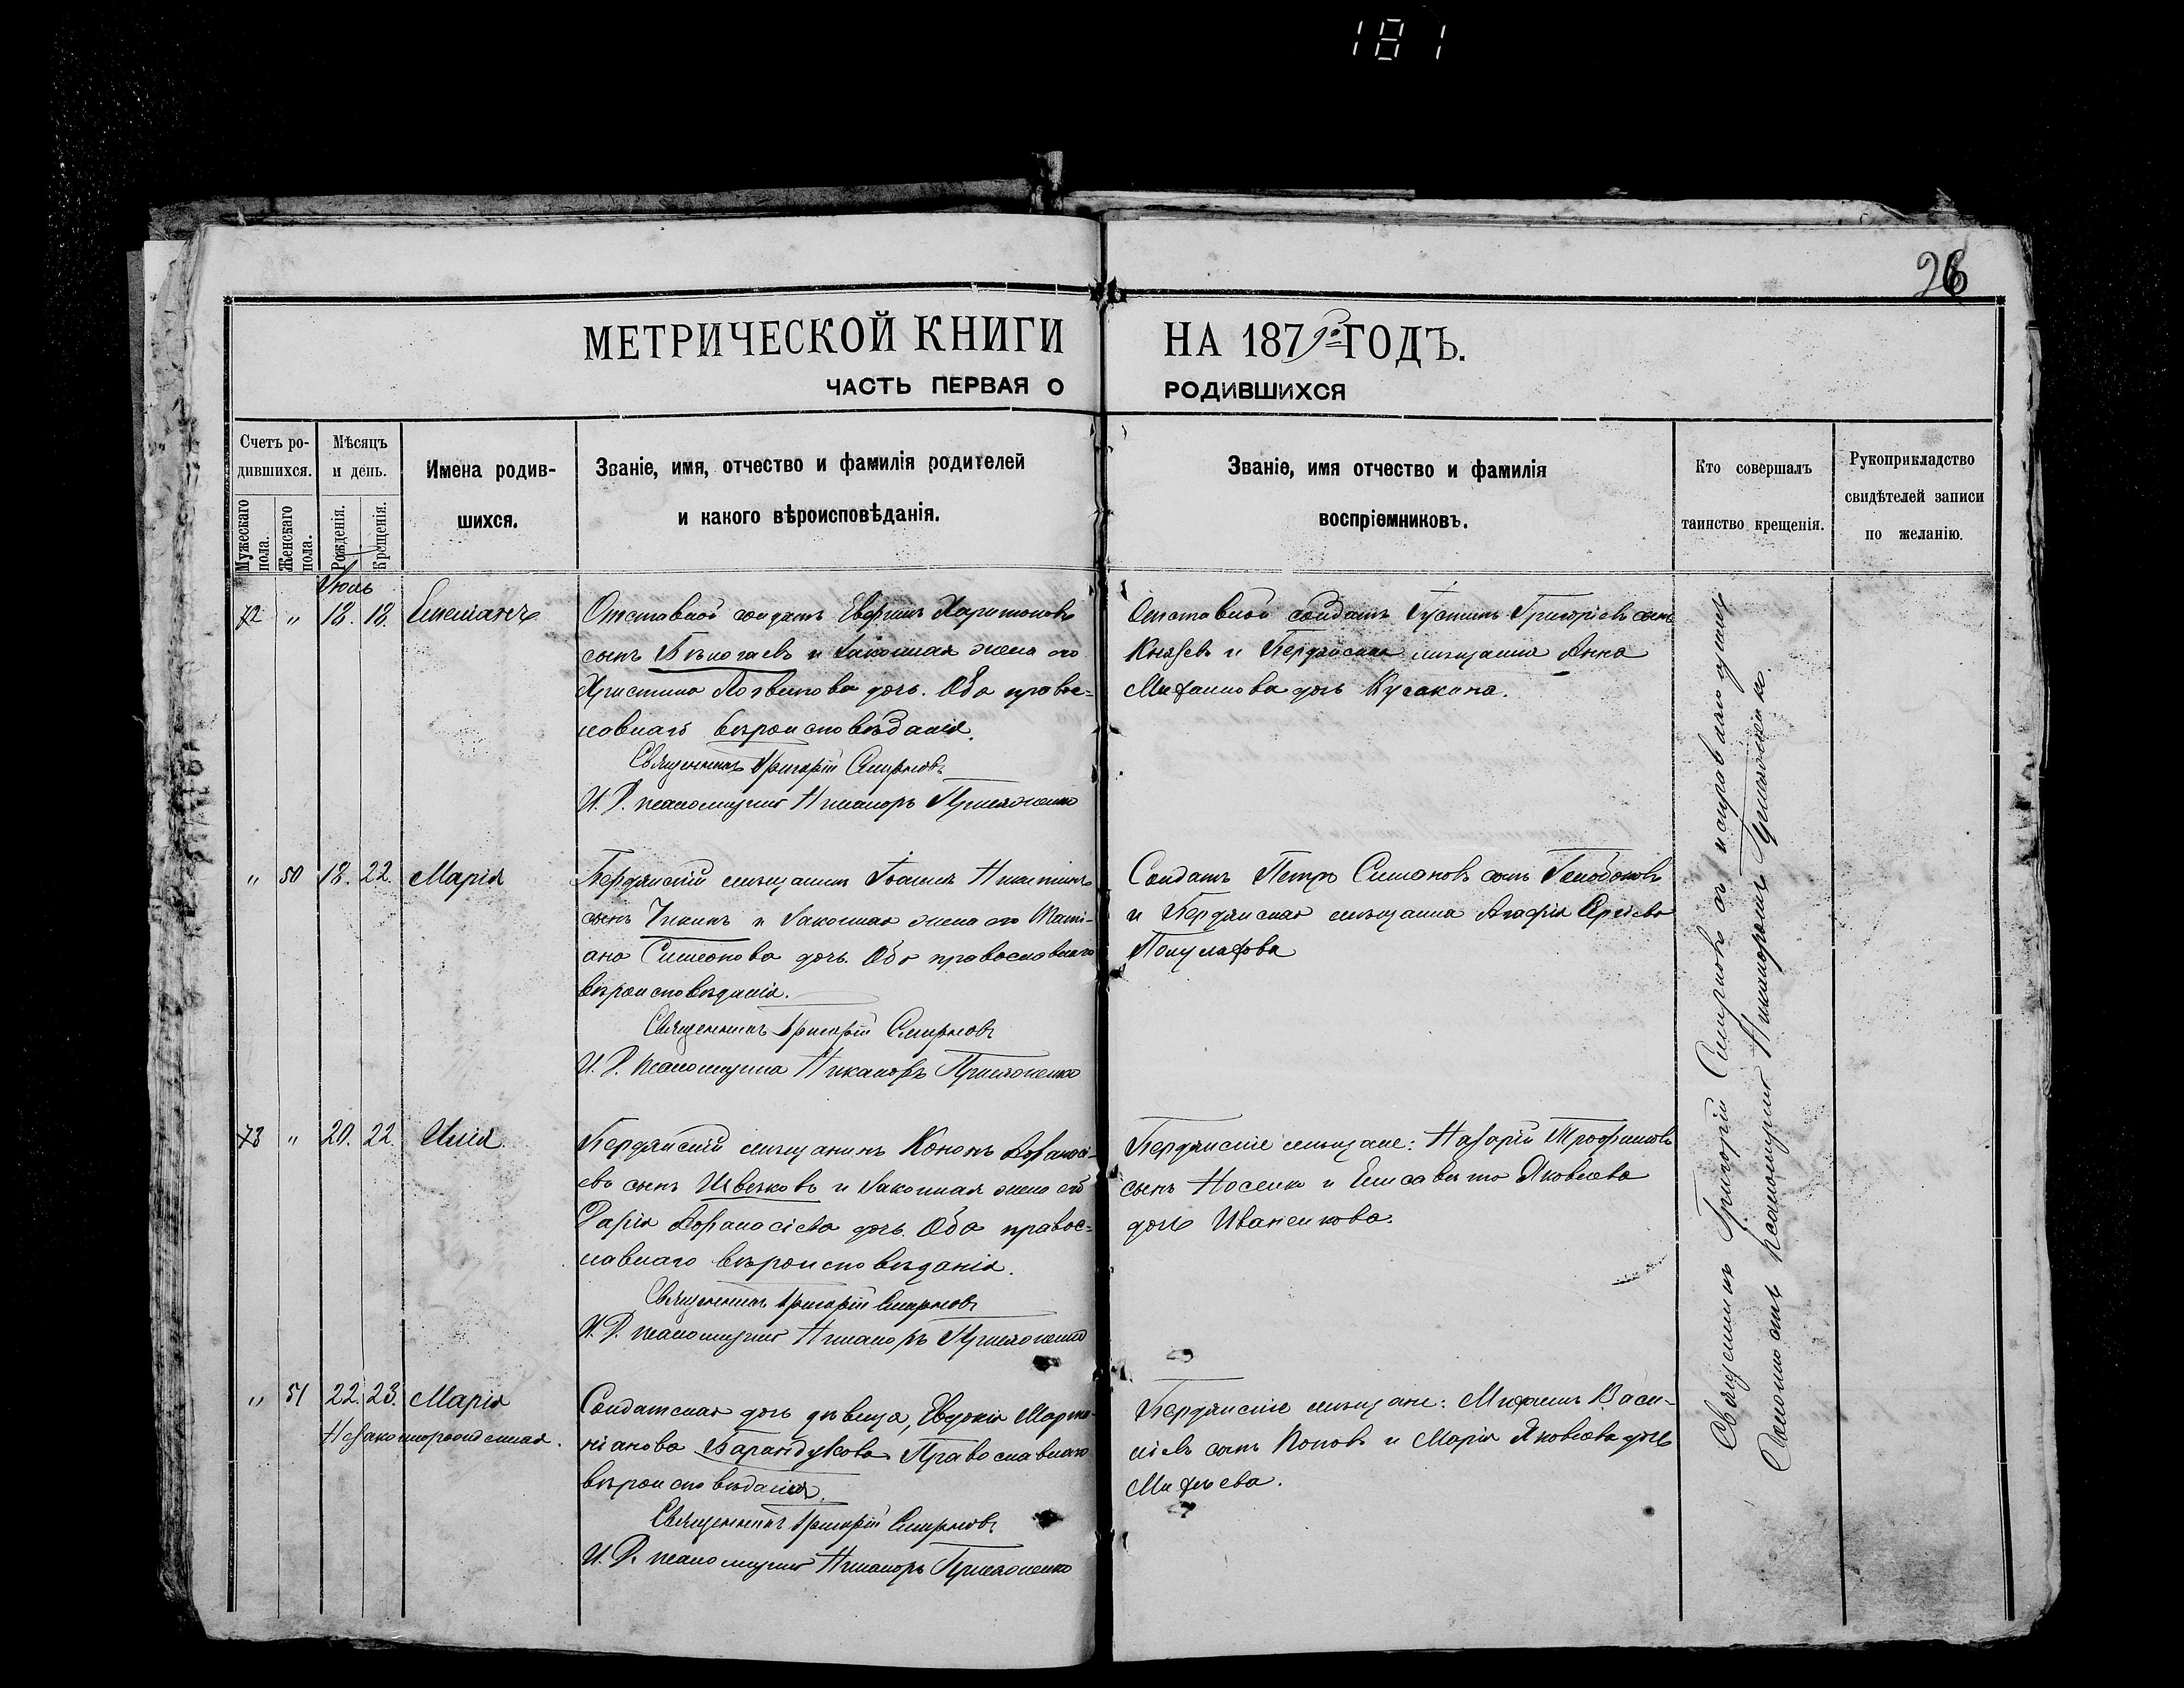 181
26
МЕТРИЧЕСКОЙ КНИГИ НА 1879го ГОДЪ.
ЧАСТЬ ПЕРВАЯ О РОДИВШИХСЯ
Счетъ ро-
дившихся.
Мужескаго
пола.
Женскаго
пола.
Мѣсяцъ
и день.
Рожденія.
Крещенія.
Имена родив-
шихся.
Званіе, имя, отчество и фамилія родителей
и какого вѣроисповѣданія.
Званіе, имя отчество и фамилія
воспріемниковъ.
Кто совершалъ
таинство крещенія.
Рукоприкладство
свидѣтелей записи
по желанію.
Іюль
72 " 18. 18.
Отставной солдатъ Евфимъ Харитоновъ
сынъ и законная жена его
Христина Логвинова дочь. Оба правос-
лавнаго вѣроисповѣданія.
Священникъ Григорій Смирновъ
И. Д. псаломщика Никаноръ
Отставной солдатъ Іустинъ Григорьевъ сынъ
Князевъ и Бердянская мѣщанка Анна
Михаилова дочь Кусакина.
" 50 18. 22. Марія
Бердянскій мѣщанинъ Іоаннъ Никитинъ
сынъ Чикинъ и законная жена его Тати-
ана Симеонова дочь. Оба православнаго
вѣроисповѣданія.
Священникъ Григорій Смирновъ
И. Д. псаломщика Никаноръ
Солдатъ Петръ Симоновъ сынъ
и Бердянская мѣщанка Агафія
73 " 20. 22. Илія
Бердянскій мѣщанинъ Кононъ Афанасі-
евъ сынъ Швечковъ и законная жена его
Дарія Афанасіева дочь. Оба правос-
лавнаго вѣроисповѣданія.
Священникъ Григорій Смирновъ
И. Д. псаломщика Никаноръ
Бердянскіе мѣщане: Назарій Трофимовъ
сынъ Носенко и Елисавета Яковлева
дочь Иваненкова.
" 51 22. 23. Марія
Незаконнорожденная.
Солдатская дочь дѣвица, Евдокія Марки-
анова Барандукова Православнаго
вѣроисповѣданія.
Священникъ Григорій Смирновъ
И. Д. псаломщика Никаноръ
Бердянскіе мѣщане: Михаилъ Васи-
ліевъ сынъ Поповъ и Марія Яковлева дочь
Михѣева.
Священникъ Григорій Смирновъ съ исправляющимъ
должность псаломщика Никаноромъ